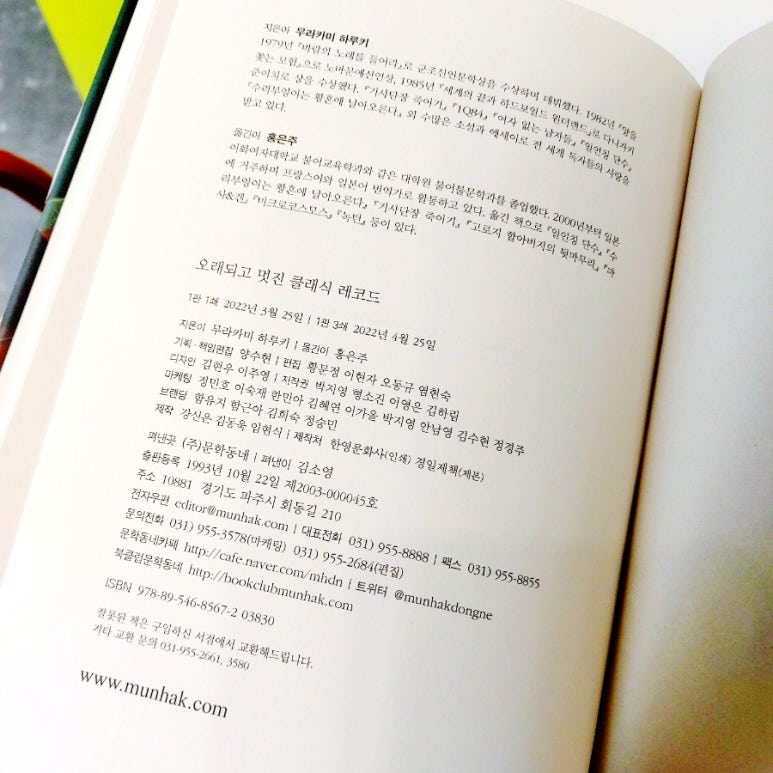 지은이 무라카미 하루키
1979년 『바람의 노래를 들어라』로 군조신인문학상을 수상하며 데뷔했다. 1982년 『양을
쫓는 모험』으로 노마문예신인상, 1985년 『세계의 끝과 하드보일드 원더랜드』로 다니자키
준이치로 상을 수상했다. 『기사단장 죽이기』 『1Q84』 『여자 없는 남자들』 『일인칭 단수』
『수리부엉이는 황혼에 날아오른다』 외 수많은 소설과 에세이로 전 세계 독자들의 사랑을
받고 있다.
옮긴이 홍은주
이화여자대학교 불어교육학과와 같은 대학원 불어불문학과를 졸업했다. 2000년부터 일본
에 거주하며 프랑스어와 일본어 번역가로 활동하고 있다. 옮긴 책으로 『일인칭 단수』 『수
리부엉이는 황혼에 날아오른다』 『기사단장 죽이기』 『고로지 할아버지의 뒷마무리』 『마
사&겐』 『미크로코스모스』 『녹턴』 등이 있다.
오래되고 멋진 클래식 레코드
1판 1쇄 2022년 3월 25일 | 1판 3쇄 2022년 4월 25일
지은이 무라카미 하루키 | 옮긴이 홍은주
기획·책임편집 양수현 | 편집 황문정 이현자 오동규 염현숙
디자인 김현우 이주영 | 저작권 박지영 형소진 이영은 김하림
마케팅 정민호 이숙재 한민아 김혜연 이가을 박지영 안남영 김수현 정경주
브랜딩 함유지 함근아 김희숙 정승민
제작 강신은 김동욱 임현식 | 제작처 한영문화사(인쇄) 경일제책(제본)
펴낸곳 (주)문학동네 | 펴낸이 김소영
출판등록 1993년 10월 22일 제2003-000045호
주소 10881 경기도 파주시 회동길 210
전자우편 editor@munhak.com | 대표전화 031) 955-8888 | 팩스 031) 955-8855
문의전화 031) 955-3578(마케팅) 031) 955-2684(편집)
문학동네카페 http://cafe.naver.com/mhdn | 트위터 @munhakdongne
북클럽문학동네 http://bookclubmunhak.com
ISBN 978-89-546-8567-2 03830
잘못된 책은 구입하신 서점에서 교환해드립니다.
기타 교환 문의 031-955-2661, 3580
www.munhak.com